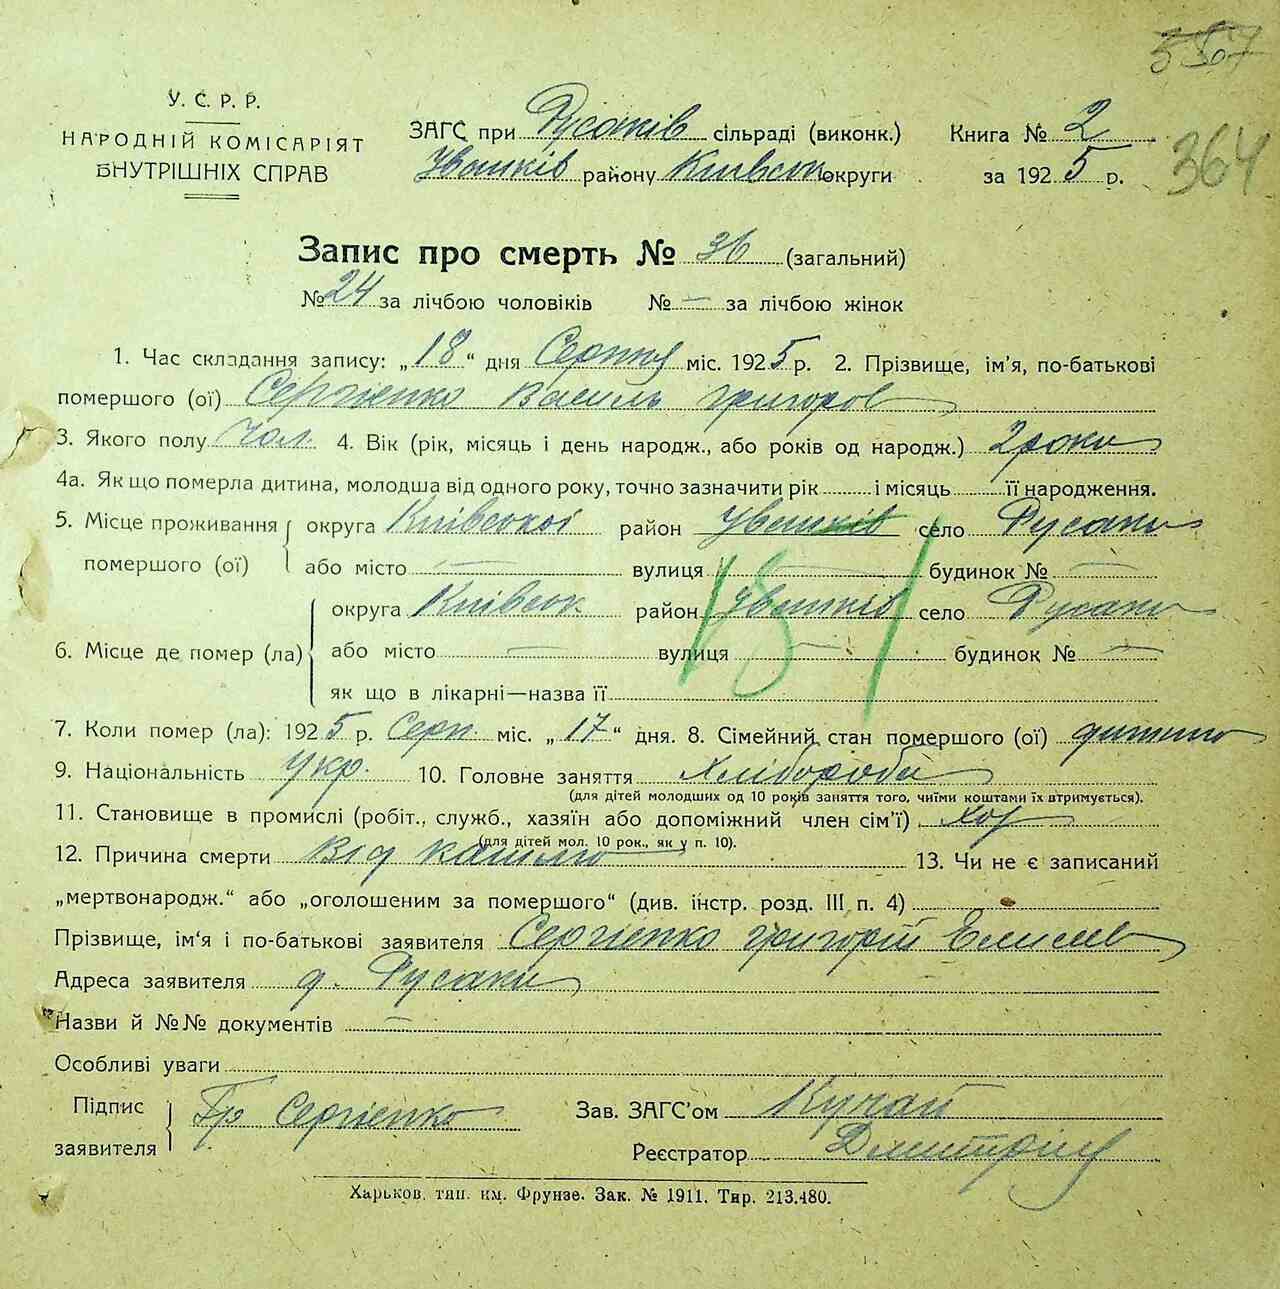 364
У. С. Р. Р.
НАРОДНІЙ КОМІСАРІЯТ
ВНУТРІШНІХ СПРАВ
ЗАГС при Русанів сільраді (виконк.) Книга № 2
району Київськ округи за 1925 р.
Запис про смерть № 36 (загальний)
№ 24 за лічбою чоловіків № — за лічбою жінок
1. Час складання запису: „18“ дня Серпня міс. 1925 р. 2. Прізвище, ім'я, по-батькові
помершого (ої) Сергієнко Василь Григоров
3. Якого полу Чол. 4. Вік (рік, місяць і день народж., або років од народж.) 2 роки
4а. Як що померла дитина, молодша від одного року, точно зазначити рік і місяць її народження.
5. Місце проживання помершого (ої) округа Київської район село Русани
або місто — вулиця — будинок № —
6. Місце де помер (ла) округа Київськ район село Русани
або місто — вулиця — будинок № —
як що в лікарні—назва її
181
7. Коли помер (ла): 1925 р. Серп. міс. „17“ дня. 8. Сімейний стан помершого (ої) дитина
9. Національність Укр. 10. Головне заняття Хлібороби
(для дітей молодших од 10 років заняття того, чиїми коштами їх втримується).
11. Становище в промислі (робіт., служб., хазяїн або допоміжний член сім'ї)
(для дітей мол. 10 рок., як у п. 10).
12. Причина смерти Від кашлю 13. Чи не є записаний
„мертвонародж.“ або „оголошеним за помершого“ (див. інстр. розд. III п. 4)
Прізвище, ім'я і по-батькові заявителя Сергієнко Григорій Елисеев
Адреса заявителя д. Русани
Назви й №№ документів —
Особливі уваги
Підпис заявителя Гр Сергієнко Зав. ЗАГС'ом Кучай
Реєстратор
Харьков. тип. им. Фрунзе. Зак. № 1911. Тир. 213.480.